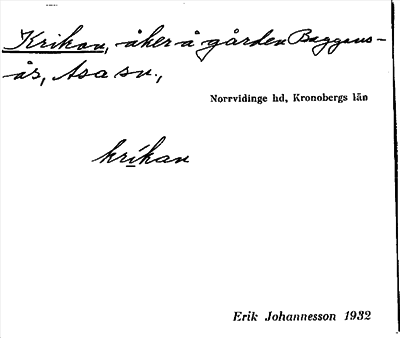 Krikan, åker å gården Baggens-
ås, Asa sn.,
Norrvidinge hd, Kronobergs län
kríkan
Erik Johannesson 1932